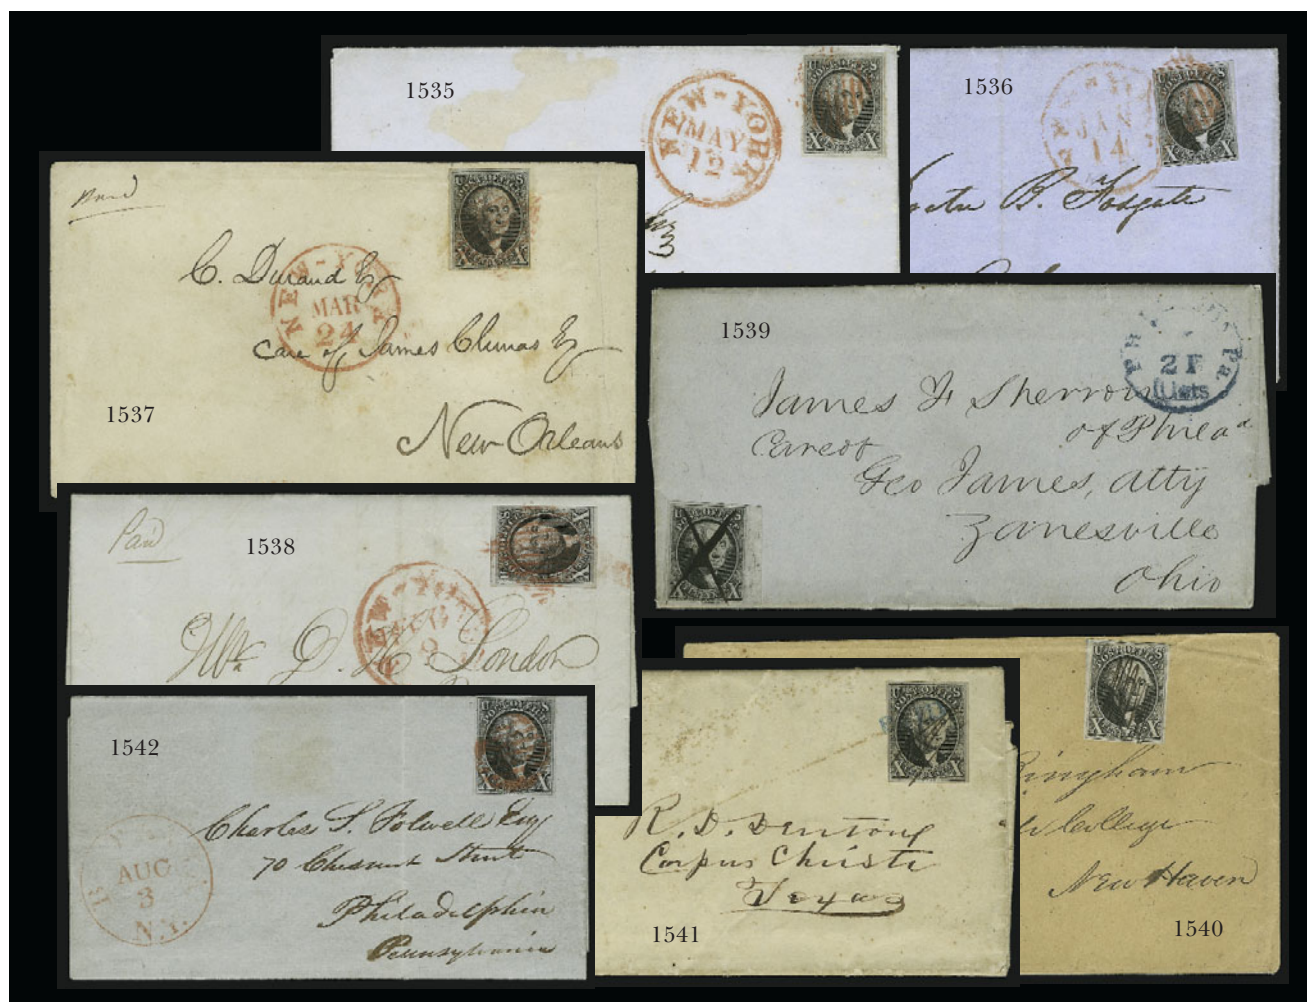 1535
NEW-YORK
MAY
12
X X
3
1536
JAN
14
X X
B. Fosgate
Paid
C. Durand Esq
NEW-YORK
MAR
24
care of James Climas Esq
New Orleans
1537
1539
Pa
2 F
cts
James F Sherron
of Philad
Care of
Geo James, atty
Zanesville
Ohio
X X
Paid
1538
NEW-YORK
AUG
9
London
1542
Charles S. Folwell Esq
70 Chesnut Street
Philadelphia
Pennsylvania
AUG
3
N.Y.
X
R. D. Denton
Corpus Christi
Texas
1541
X X
Bingham
College
New Haven
1540